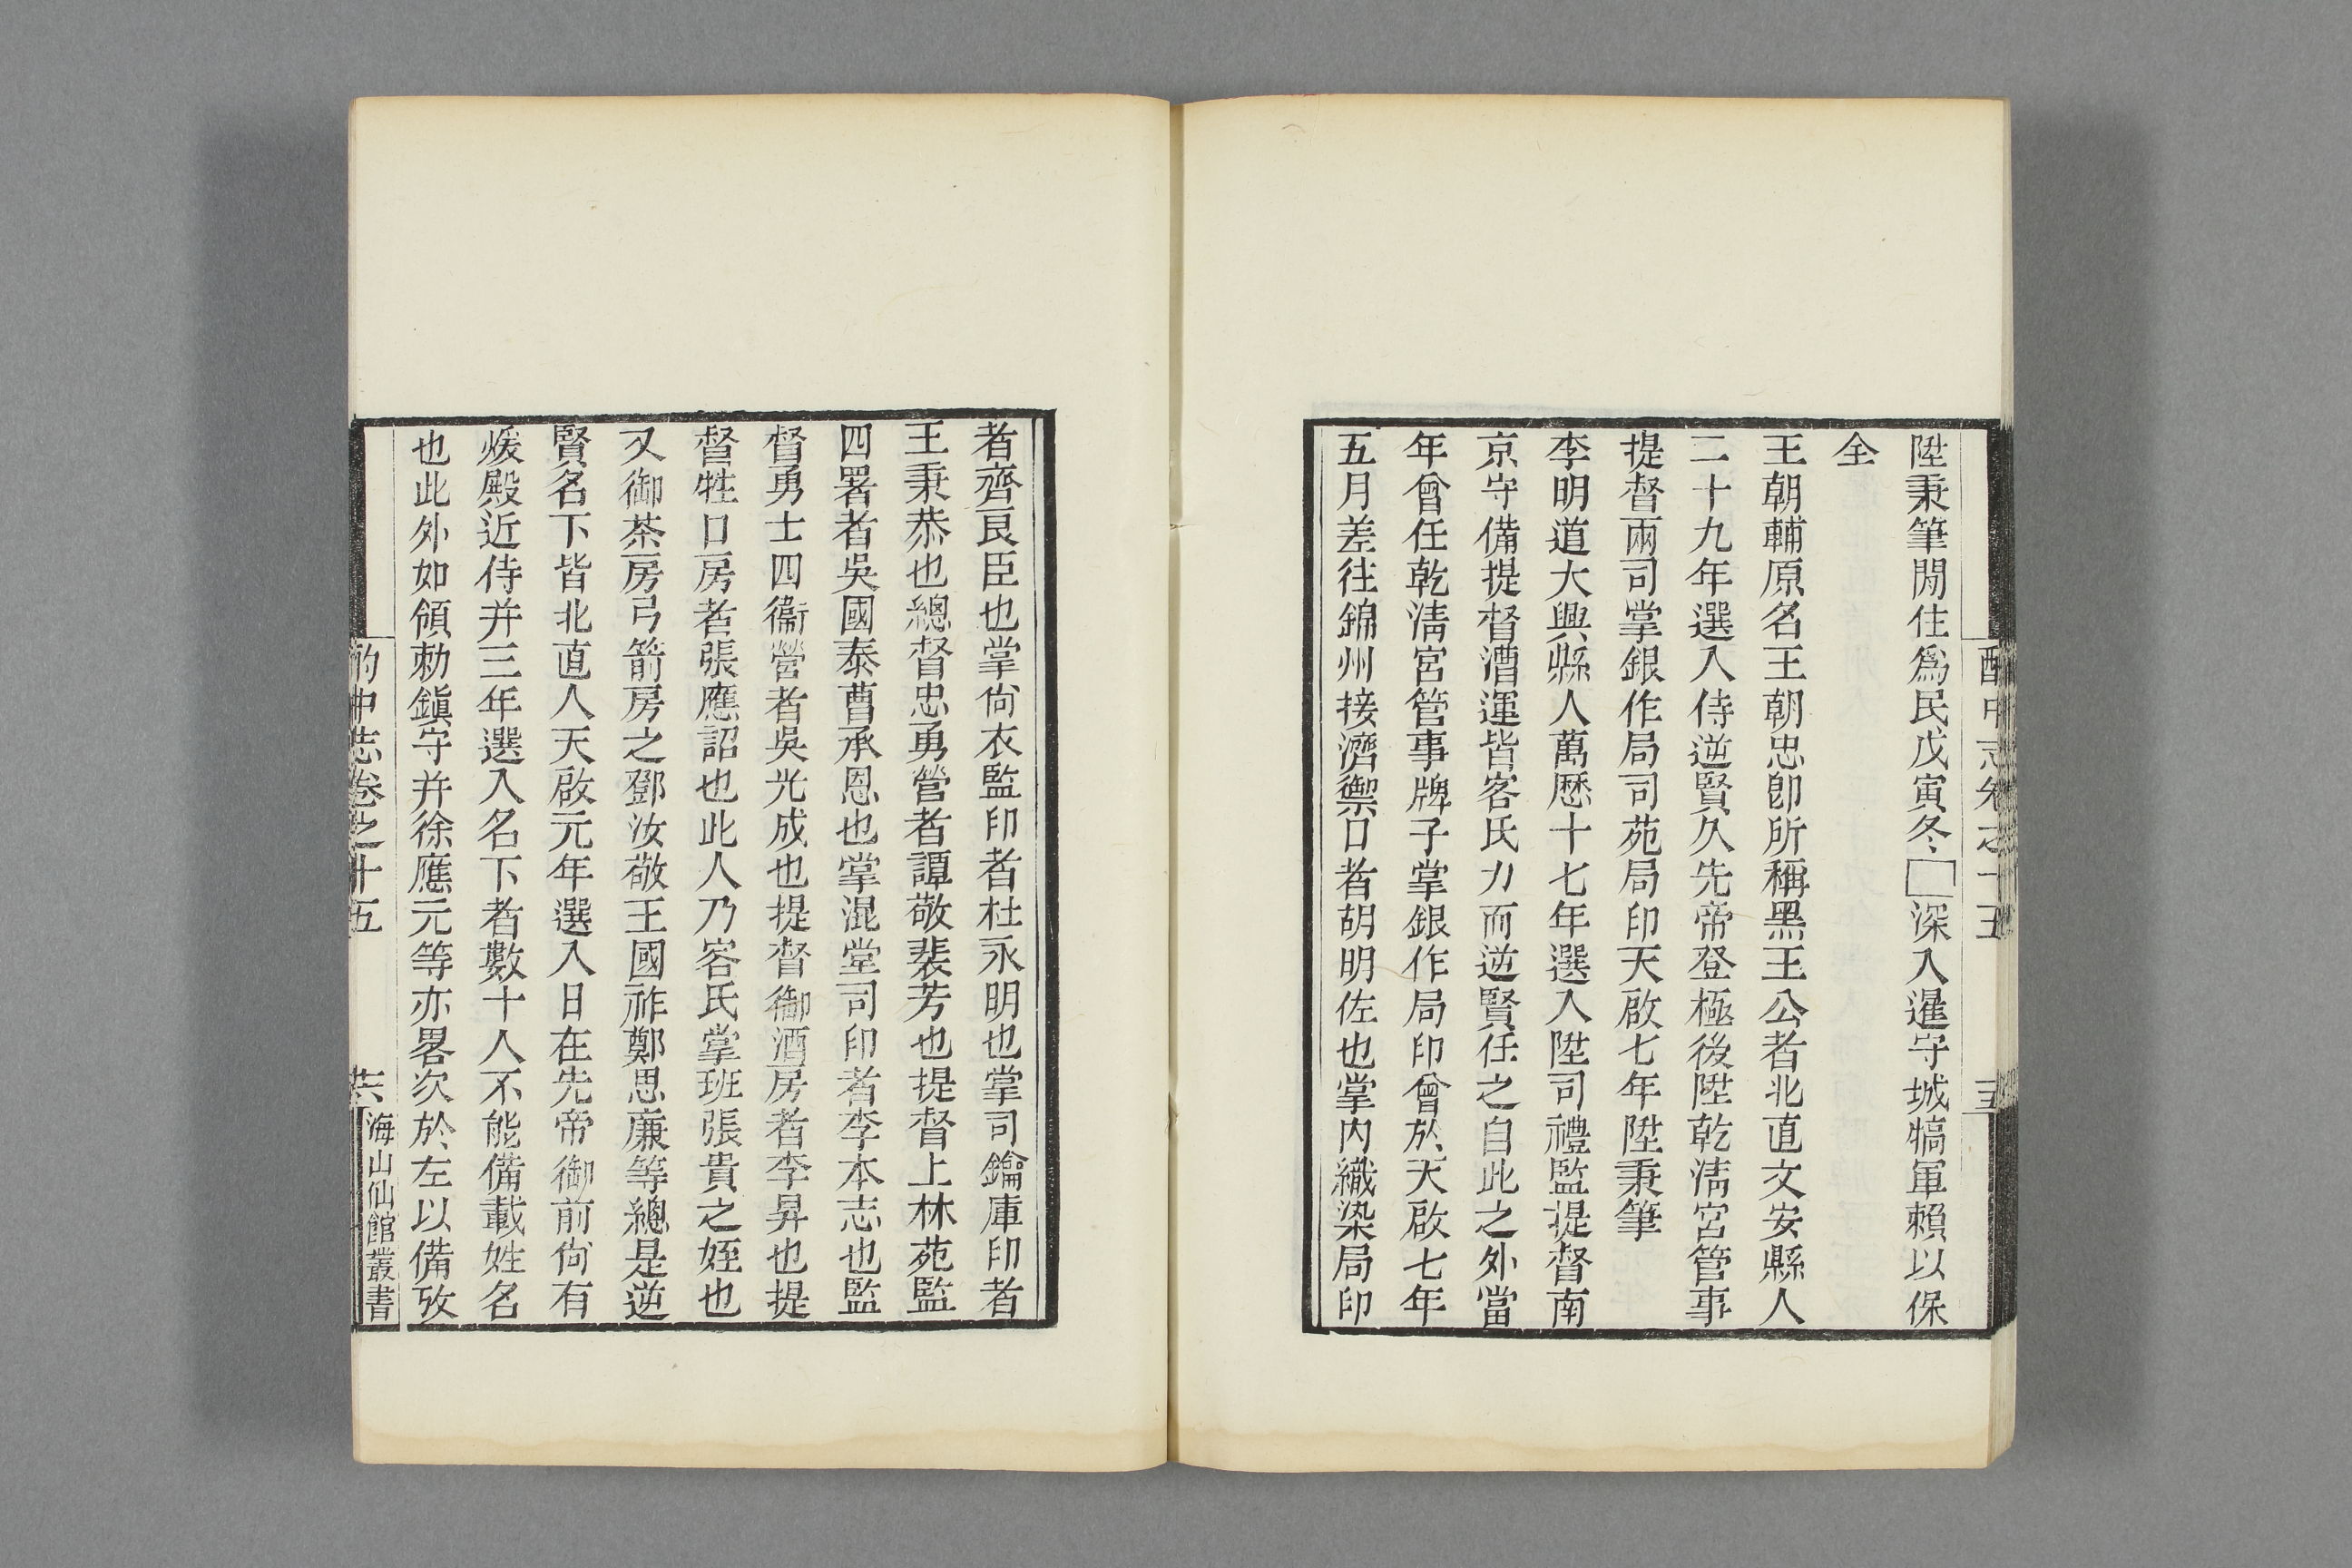 酌中志卷之十五
陞秉筆閒住爲民戊寅冬□深入暹守城犒軍賴以保
全
王朝輔原名王朝忠卽所稱黑王公者北直文安縣人
二十九年選入侍逆賢久先帝登極後陞乾淸宮管事
提督兩司掌銀作局司苑局印天啟七年陞秉筆
李明道大興縣人萬歷十七年選入陞司禮監提督南
京守備提督漕運皆客氏力而逆賢任之自此之外當
年曾任乾淸宮管事牌子掌銀作局印曾於天啟七年
五月差往錦州接濟禦口者胡明佐也掌內織染局印
者齊良臣也掌尙衣監印者杜永明也掌司鑰庫印者
王秉恭也總督忠勇營者譚敬裴芳也提督上林苑監
四署者吳國泰曹承恩也掌混堂司印者李本志也監
督勇士四衞營者吳光成也提督御酒房者李昇也提
督牲口房者張應詔也此人乃客氏掌班張貴之姪也
又御茶房弓箭房之鄧汝敬王國祚鄭思廉等總是逆
賢名下皆北直人天啟元年選入日在先帝御前尙有
煖殿近侍并三年選入名下者數十人不能備載姓名
也此外如領勅鎭守并徐應元等亦畧次於左以備攷
酌中志卷之十五
海山仙館叢書